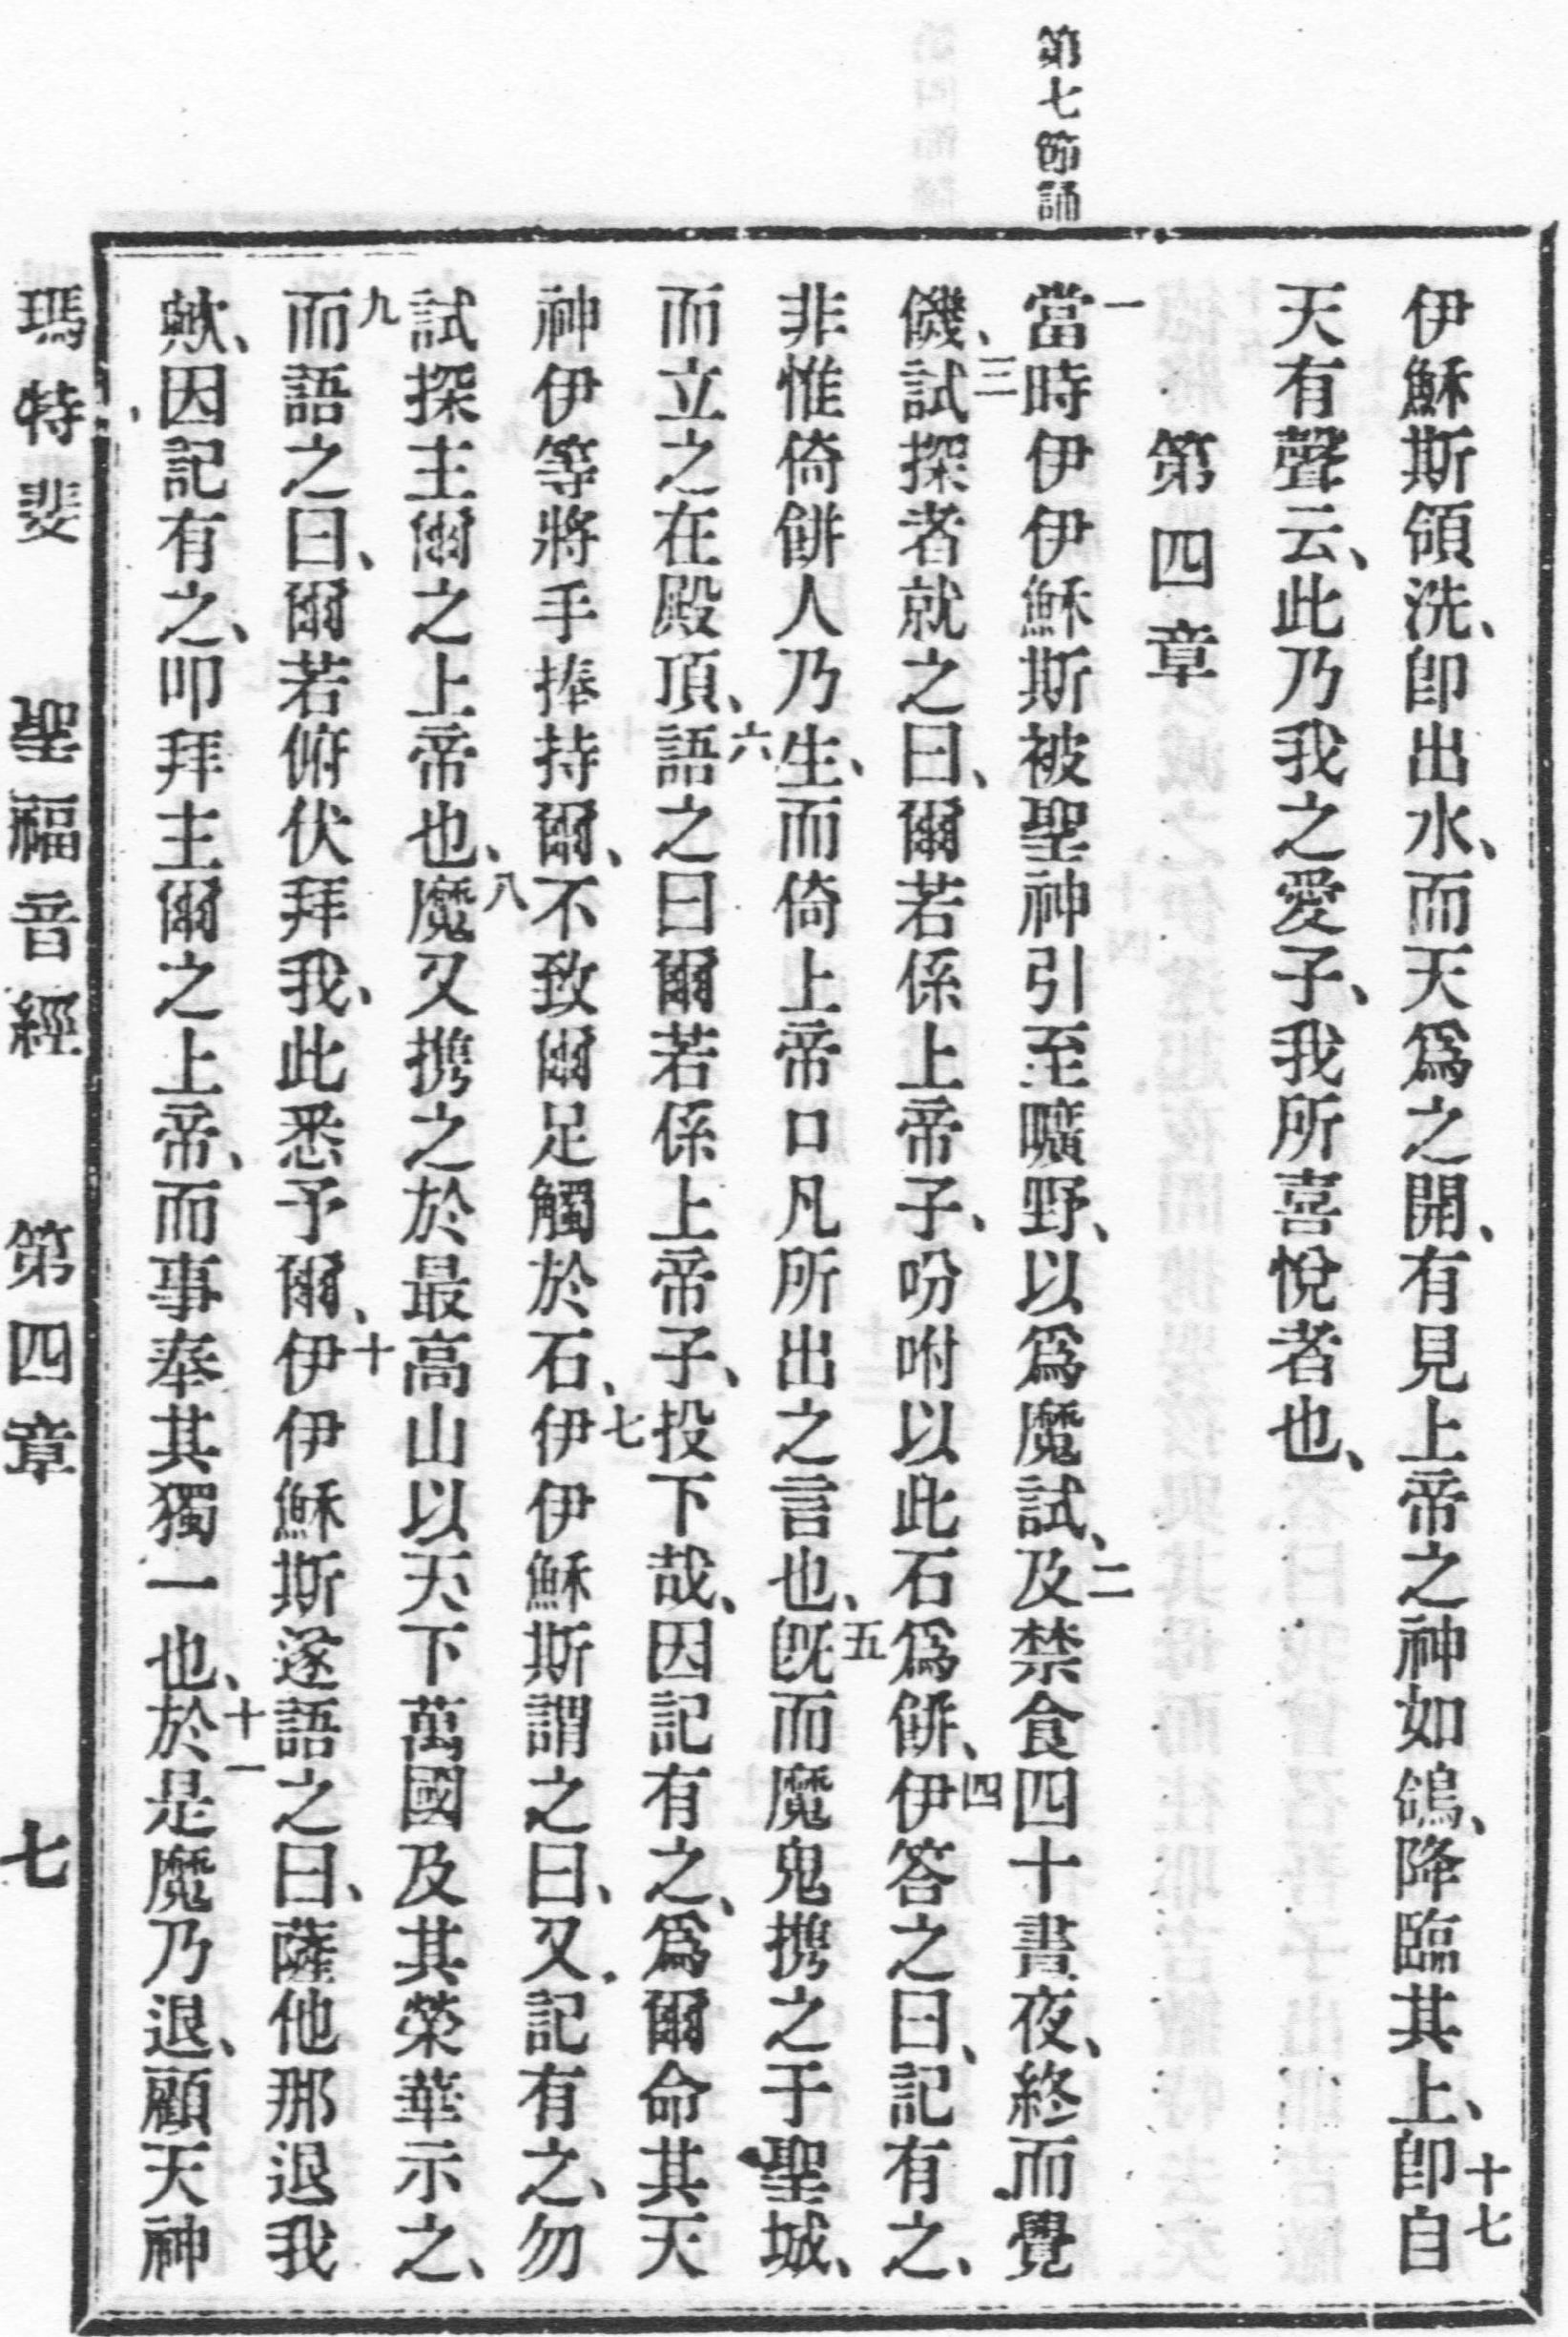 第七節誦
伊穌斯領洗、卽出水、而天爲之開、有見上帝之神如鴿、降臨其上、十七卽自
天有聲云、此乃我之愛子、我所喜悅者也、
第四章
一當時伊伊穌斯被聖神引至曠野、以爲魔試、二及禁食四十晝夜、終而覺
饑、三試探者就之曰、爾若係上帝子、吩咐以此石爲餠、四伊答之曰、記有之、
非惟倚餠人乃生、而倚上帝口凡所出之言也、五旣而魔鬼携之于聖城、
而立之在殿頂、六語之曰爾若係上帝子、投下哉、因記有之、爲爾命其天
神伊等將手捧持爾、不致爾足觸於石、七伊伊穌斯謂之曰、又記有之、勿
試探主爾之上帝也、八魔又携之於最高山以天下萬國及其榮華示之、
九而語之曰、爾若俯伏拜我、此悉予爾、十伊伊穌斯遂語之曰、薩他那退我
歟、因記有之、叩拜主爾之上帝、而事奉其獨一也、十一於是魔乃退、顧天神
瑪特斐 聖福音經 第四章 七